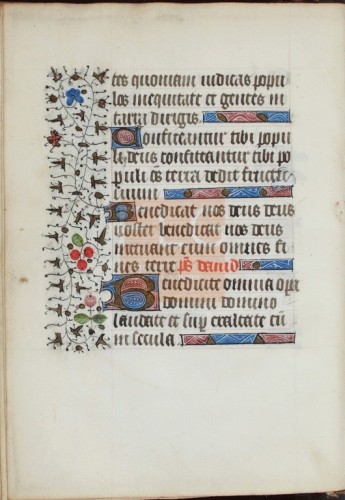 tes quoniam iudicas popu
los inequitate et gentes in
terra dirigis.
Confiteantur tibi popu
li deus confiteantur tibi po
puli oes terra dedit fructu
suum
Benedicat nos deus deus
noster benedicat nos deus
metuant eum omnes fi
nes terre. ps dauid
Benedicite omnia opa
domini domino
laudate et sup exaltate eu
in secula.